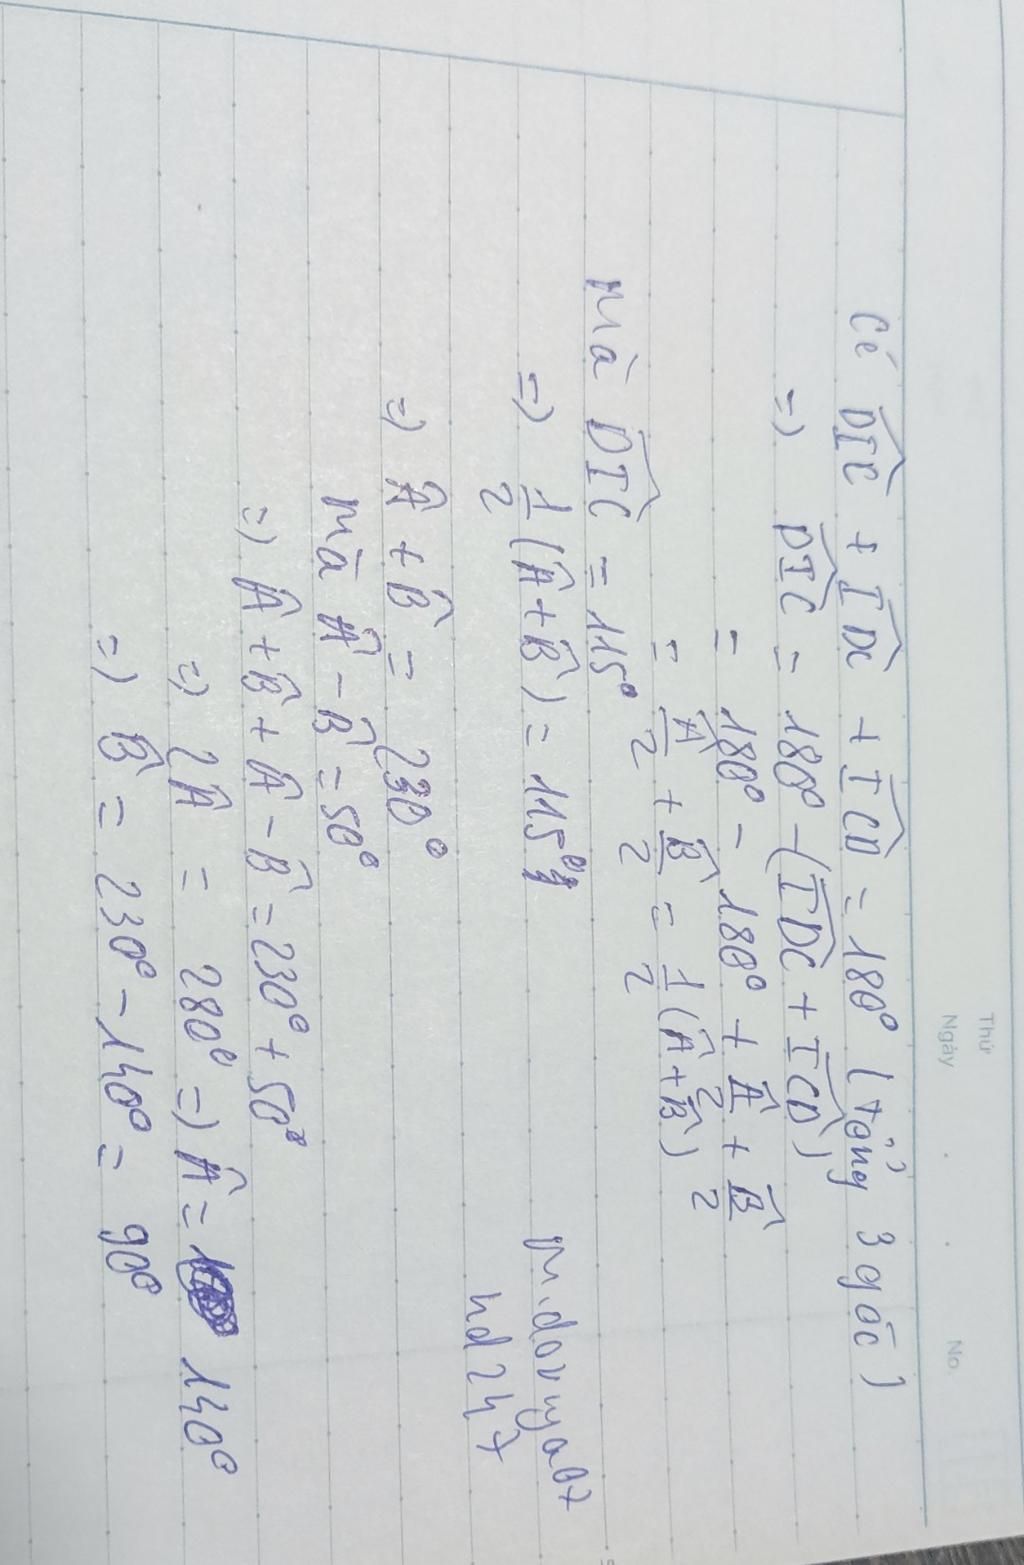 Thứ
Ngày
No.
Có \widehat{DIC} + \widehat{IDC} + \widehat{ICD} = 180° (tổng 3 góc)
=) \widehat{DIC} = 180° - (\widehat{IDC} + \widehat{ICD})
= 180° - 180° + \frac{\widehat{A}}{2} + \frac{\widehat{B}}{2}
= \frac{\widehat{A}}{2} + \frac{\widehat{B}}{2} = \frac{1}{2}(\widehat{A} + \widehat{B})
Mà \widehat{DIC} = 115°
=) \frac{1}{2}(\widehat{A} + \widehat{B}) = 115°
=) \widehat{A} + \widehat{B} = 230°
mà \widehat{A} - \widehat{B} = 50°
=) \widehat{A} + \widehat{B} + \widehat{A} - \widehat{B} = 230° + 50°
=) 2\widehat{A} = 280° =) \widehat{A} = 140°
=) \widehat{B} = 230° - 140° = 90°
hd247